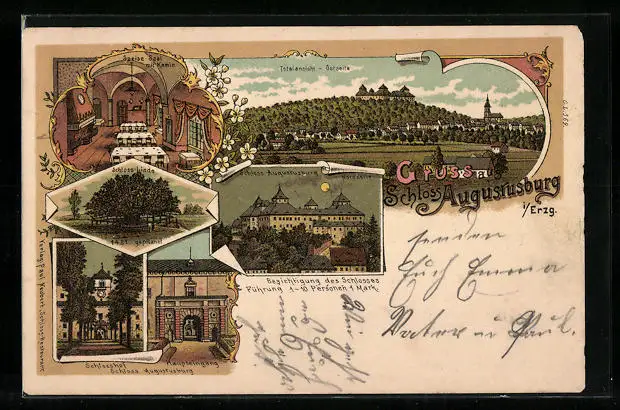 Speise-Saal
mit Kamin
Totalansicht - Ostseite
Gruss aus
Schloss Augustusburg
i/Erzg.
Schloss Linde
1421 gepflanzt
Schloss Augustusburg
Nordseite
Besichtigung des Schlosses
Führung 1-10 Personen 1 Mark.
Schlosshof
Haupteingang
Schloss Augustusburg
senden
Euch Emma
Vater u Paul.